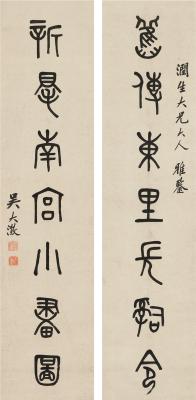 潤生大兄大人雅鑒
舊傳東里長辭令
新得南宮小畫圖
吳大澂